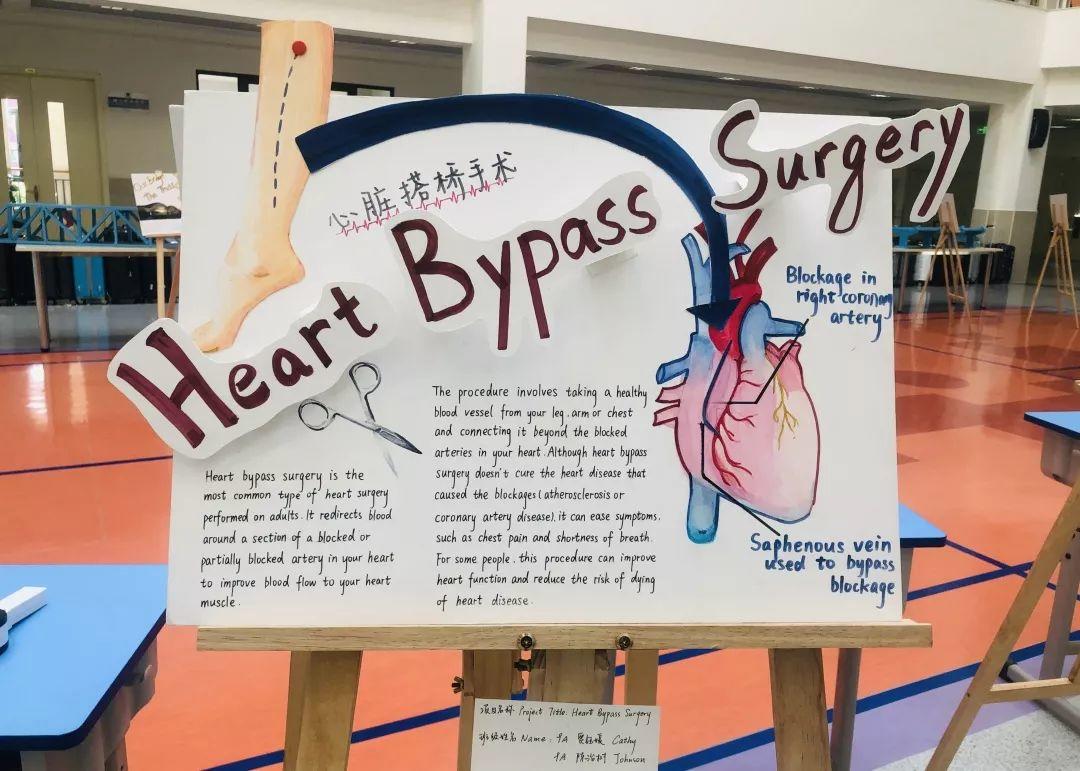 Heart Bypass Surgery
心脏搭桥手术
Blockage in
right coronary
artery
Heart bypass surgery is the
most common type of heart surgery
performed on adults. It redirects blood
around a section of a blocked or
partially blocked artery in your heart
to improve blood flow to your heart
muscle.
The procedure involves taking a healthy
blood vessel from your leg, arm or chest
and connecting it beyond the blocked
arteries in your heart. Although heart bypass
surgery doesn't cure the heart disease that
caused the blockages (atherosclerosis or
coronary artery disease), it can ease symptoms,
such as chest pain and shortness of breath.
For some people, this procedure can improve
heart function and reduce the risk of dying
of heart disease.
Saphenous vein
used to bypass
blockage
项目名称 Project Title: Heart Bypass Surgery
班级姓名 Name: Cathy
Johnson